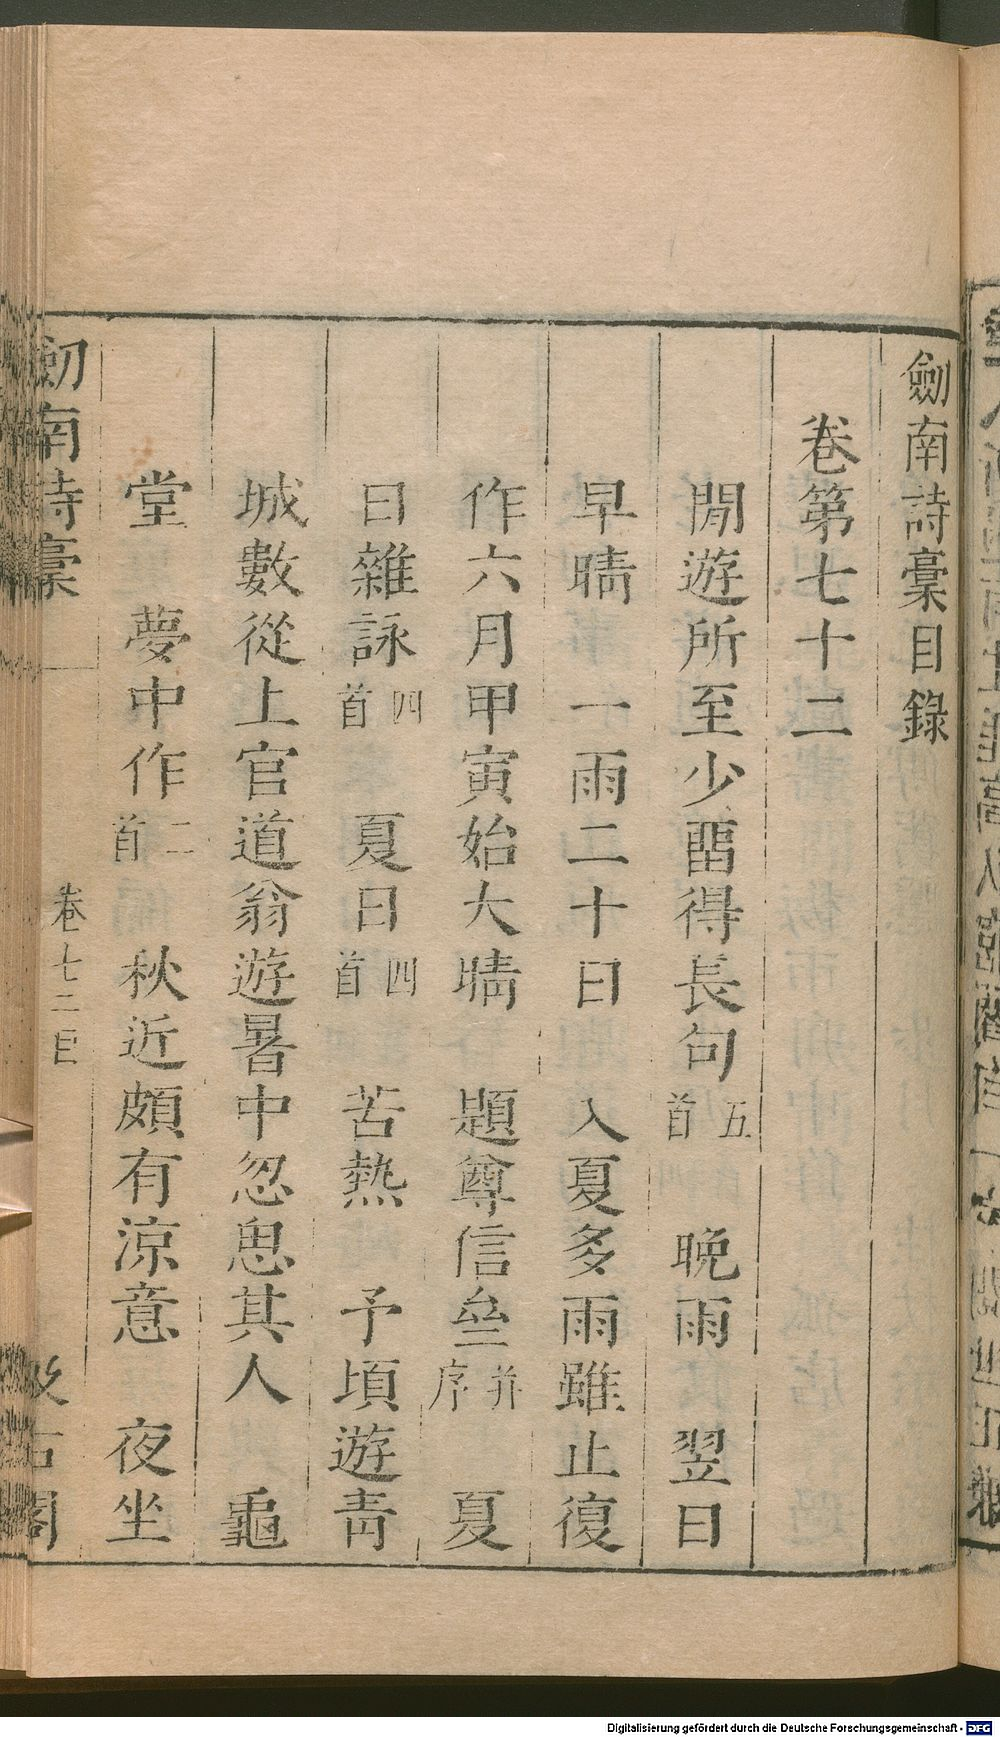 劔南詩稾目錄
卷第七十二
閒遊所至少畱得長句五首 晚雨 翌日
早晴 一雨二十日 入夏多雨雖止復
作六月甲寅始大晴 題尊信亝并序 夏
日雜詠四首 夏日四首 苦熱 予頃遊靑
城數從上官道翁遊暑中忽思其人 龜
堂 夢中作二首 秋近頗有涼意 夜坐
劔南詩稾 卷七十二目 汲古閣
Digitalisierung gefördert durch die Deutsche Forschungsgemeinschaft - DFG